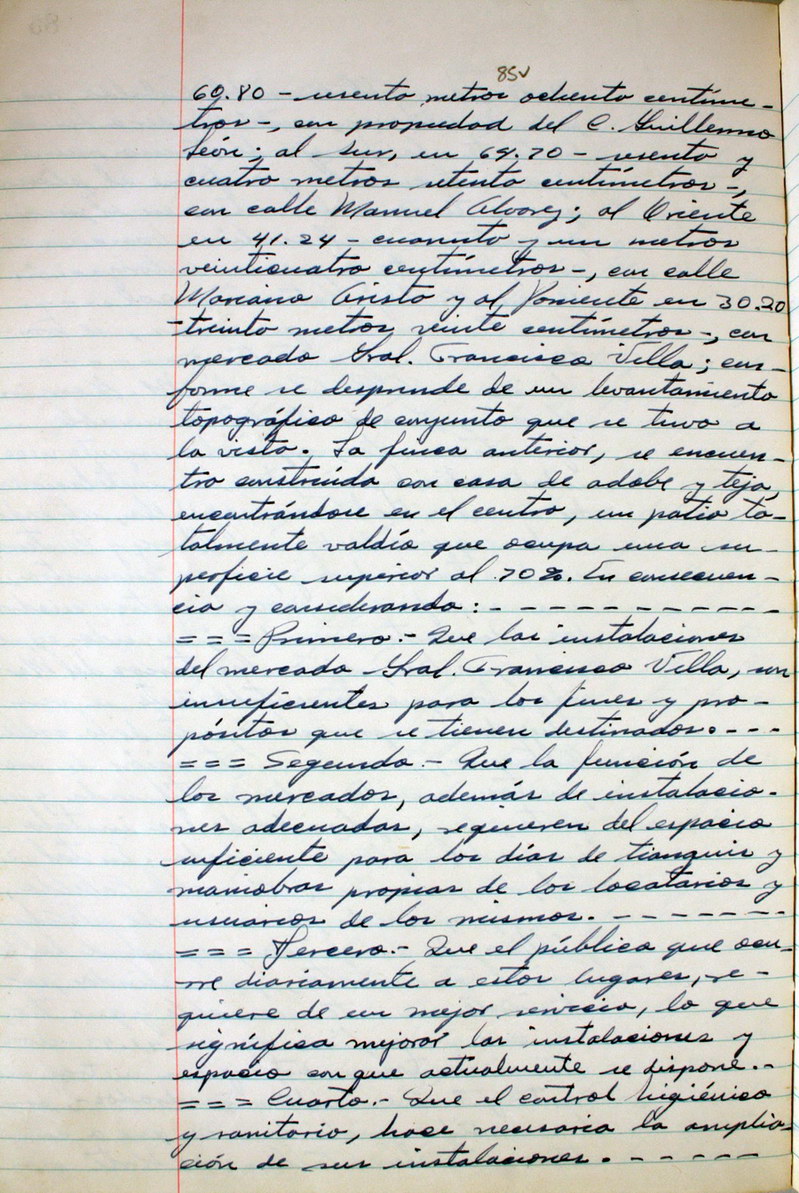 85v
60.80 - sesenta metros ochenta centíme-
tros -, con propiedad del C. Guillermo
León; al Sur, en 64.70 - sesenta y
cuatro metros setenta centímetros -,
con calle Manuel Alvarez; al Oriente
en 41.24 - cuarenta y un metros
veinticuatro centímetros -, con calle
Mariano Aristo y al Poniente en 30.20
- treinta metros veinte centímetros -, con
mercado Gral. Francisco Villa; con-
forme se desprende de un levantamiento
topográfico de conjunto que se tuvo a
la vista. La finca anterior, se encuen-
tra construída con casa de adobe y teja,
encontrándose en el centro, un patio to-
talmente valdío que ocupa una su-
perficie superior al 70%. En consecuen-
cia y considerando: - - - - - - - - - - -
= = = Primero.- Que las instalaciones
del mercado Gral. Francisco Villa, son
insuficientes para los fines y pro-
pósitos que se tienen destinados. - - -
= = = Segundo.- Que la función de
los mercados, además de instalacio-
nes adecuadas, requieren del espacio
suficiente para los días de tianguis y
maniobras propias de los locatarios y
usuarios de los mismos. - - - - - - -
= = = Tercero.- Que el público que ocu-
rre diariamente a estos lugares, re-
quiere de un mejor servicio, lo que
significa mejorar las instalaciones y
espacio con que actualmente se dispone.-
= = = Cuarto.- Que el control higiénico
y sanitario, hace necesaria la amplia-
ción de sus instalaciones. - - - - - -